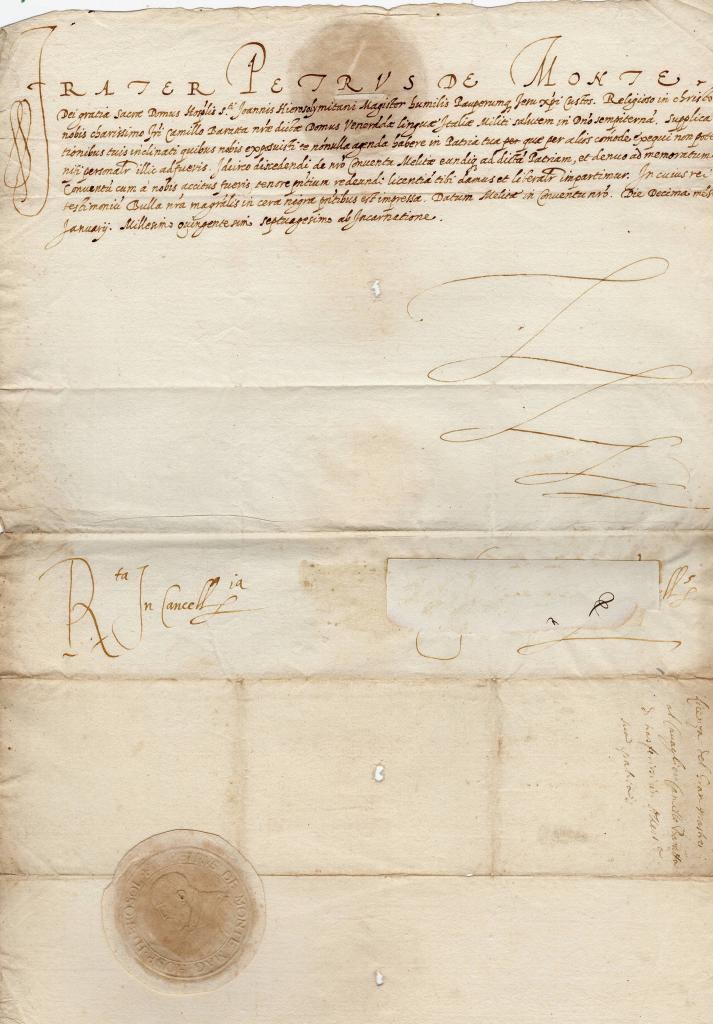 FRATER PETRVS DE MONTE.
Dei gratia Sacrae Domus Hosplis Sti. Joannis Hierosolymitani Magister humilis Pauperumq Jesu Xpi Custos. Religioso in christo
nobis charissimo fri Camillo Baratta nrae dictae Domus Venerandae linguae Italiae Militi salutem in Dno sempiternā. Supplica
tionibus tuis inclinati quibus nobis exposuisti te nonulla agenda habere in Patria tua per que per alios comode exequi non pote
nisi personalr illic adfueris. Idcirco discedendi de nro Conventu Melitae eundiq ad dictā Patriam, et denuo ad memoratum
Conventū cum a nobis accitus fueris tenore pntium redeundi licentiā tibi damus et liberalr impartimur. In cuius rei
testimoniū Bulla nra magralis in cera nigra pntibus est impressa. Datum Melitae in Conventu nro. Die Decima mēs
Januarij. Millesimo quingentesimo septuagesimo ab Incarnatione.
Rta In Cancellia
llus
Licenza del Gran Maestro
al Cavaglier Camillo Baratta
di
sua patria
DE MONTE MAG
HOSP HIEROSOL